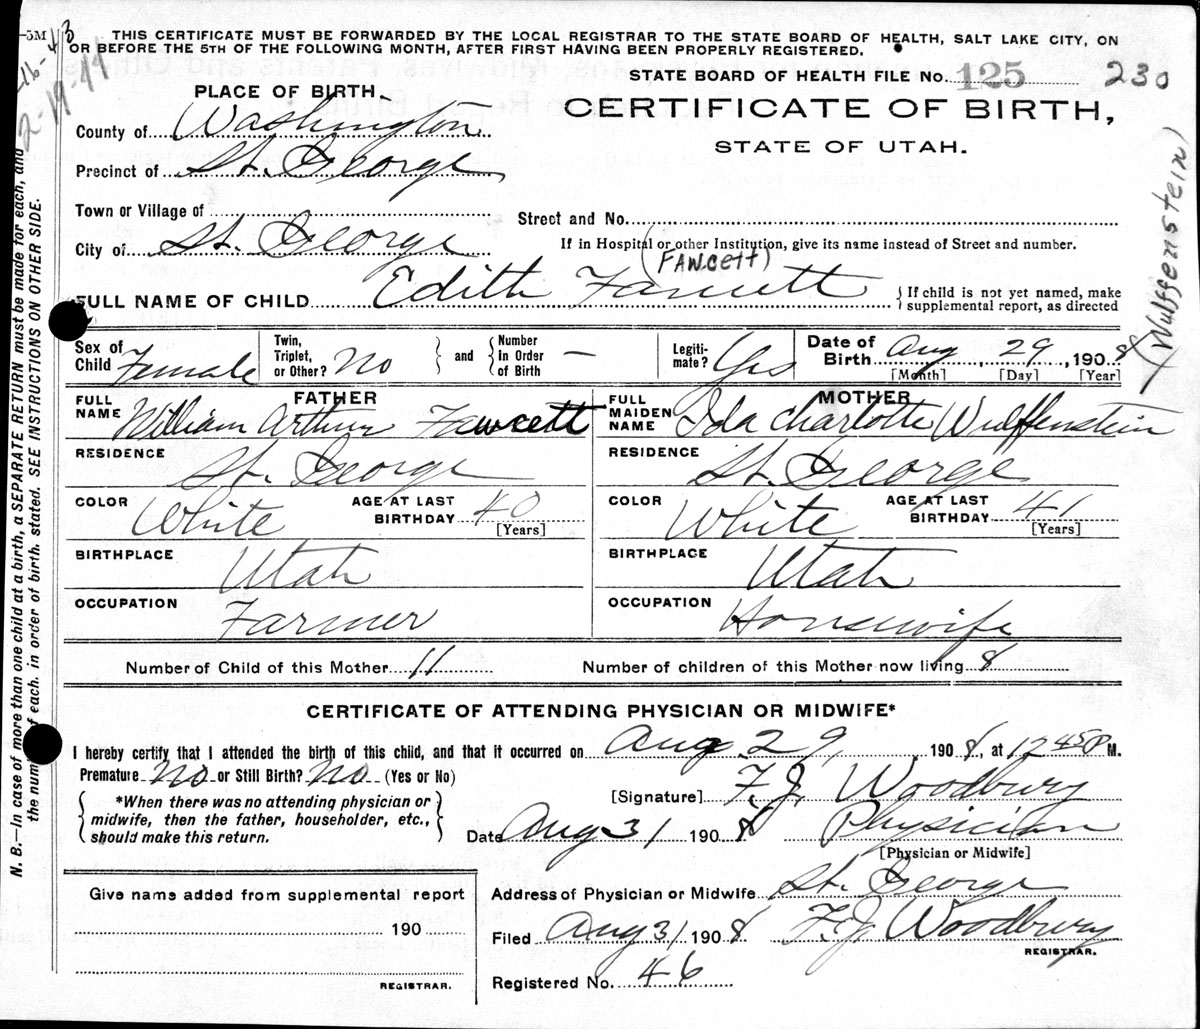 THIS CERTIFICATE MUST BE FORWARDED BY THE LOCAL REGISTRAR TO THE STATE BOARD OF HEALTH, SALT LAKE CITY, ON
OR BEFORE THE 5TH OF THE FOLLOWING MONTH, AFTER FIRST HAVING BEEN PROPERLY REGISTERED.
STATE BOARD OF HEALTH FILE No. 125 230
PLACE OF BIRTH.
CERTIFICATE OF BIRTH,
STATE OF UTAH.
County of Washington
Precinct of St. George
Town or Village of
Street and No.
City of St. George
If in Hospital or other Institution, give its name instead of Street and number.
(FAWCETT)
FULL NAME OF CHILD Edith Fawcett
{ If child is not yet named, make
supplemental report, as directed
(Wulffenstein)
Sex of Child Female
Twin, Triplet, or Other? No
and
Number in Order of Birth —
Legitimate? Yes
Date of Birth Aug, 29, 1908
[Month] [Day] [Year]
FATHER
FULL NAME William Arthur Fawcett
RESIDENCE St. George
COLOR White
AGE AT LAST BIRTHDAY 40 [Years]
BIRTHPLACE Utah
OCCUPATION Farmer
MOTHER
FULL MAIDEN NAME Ida Charlotte Wulffenstein
RESIDENCE St. George
COLOR White
AGE AT LAST BIRTHDAY 41 [Years]
BIRTHPLACE Utah
OCCUPATION Housewife
Number of Child of this Mother 11
Number of children of this Mother now living 8
CERTIFICATE OF ATTENDING PHYSICIAN OR MIDWIFE*
I hereby certify that I attended the birth of this child, and that it occurred on Aug 29, 1908, at 12 45 P M.
Premature No or Still Birth? No (Yes or No)
*When there was no attending physician or
midwife, then the father, householder, etc.,
should make this return.
[Signature] F. J. Woodbury
Date Aug 31 1908 Physician
[Physician or Midwife]
Give name added from supplemental report
190
REGISTRAR.
Address of Physician or Midwife St. George
Filed Aug 31 1908 F. J. Woodbury
REGISTRAR.
Registered No. 46
N. B.—In case of more than one child at a birth, a SEPARATE RETURN must be made for each, and
the number of each, in order of birth, stated. SEE INSTRUCTIONS ON OTHER SIDE.
2-19-44